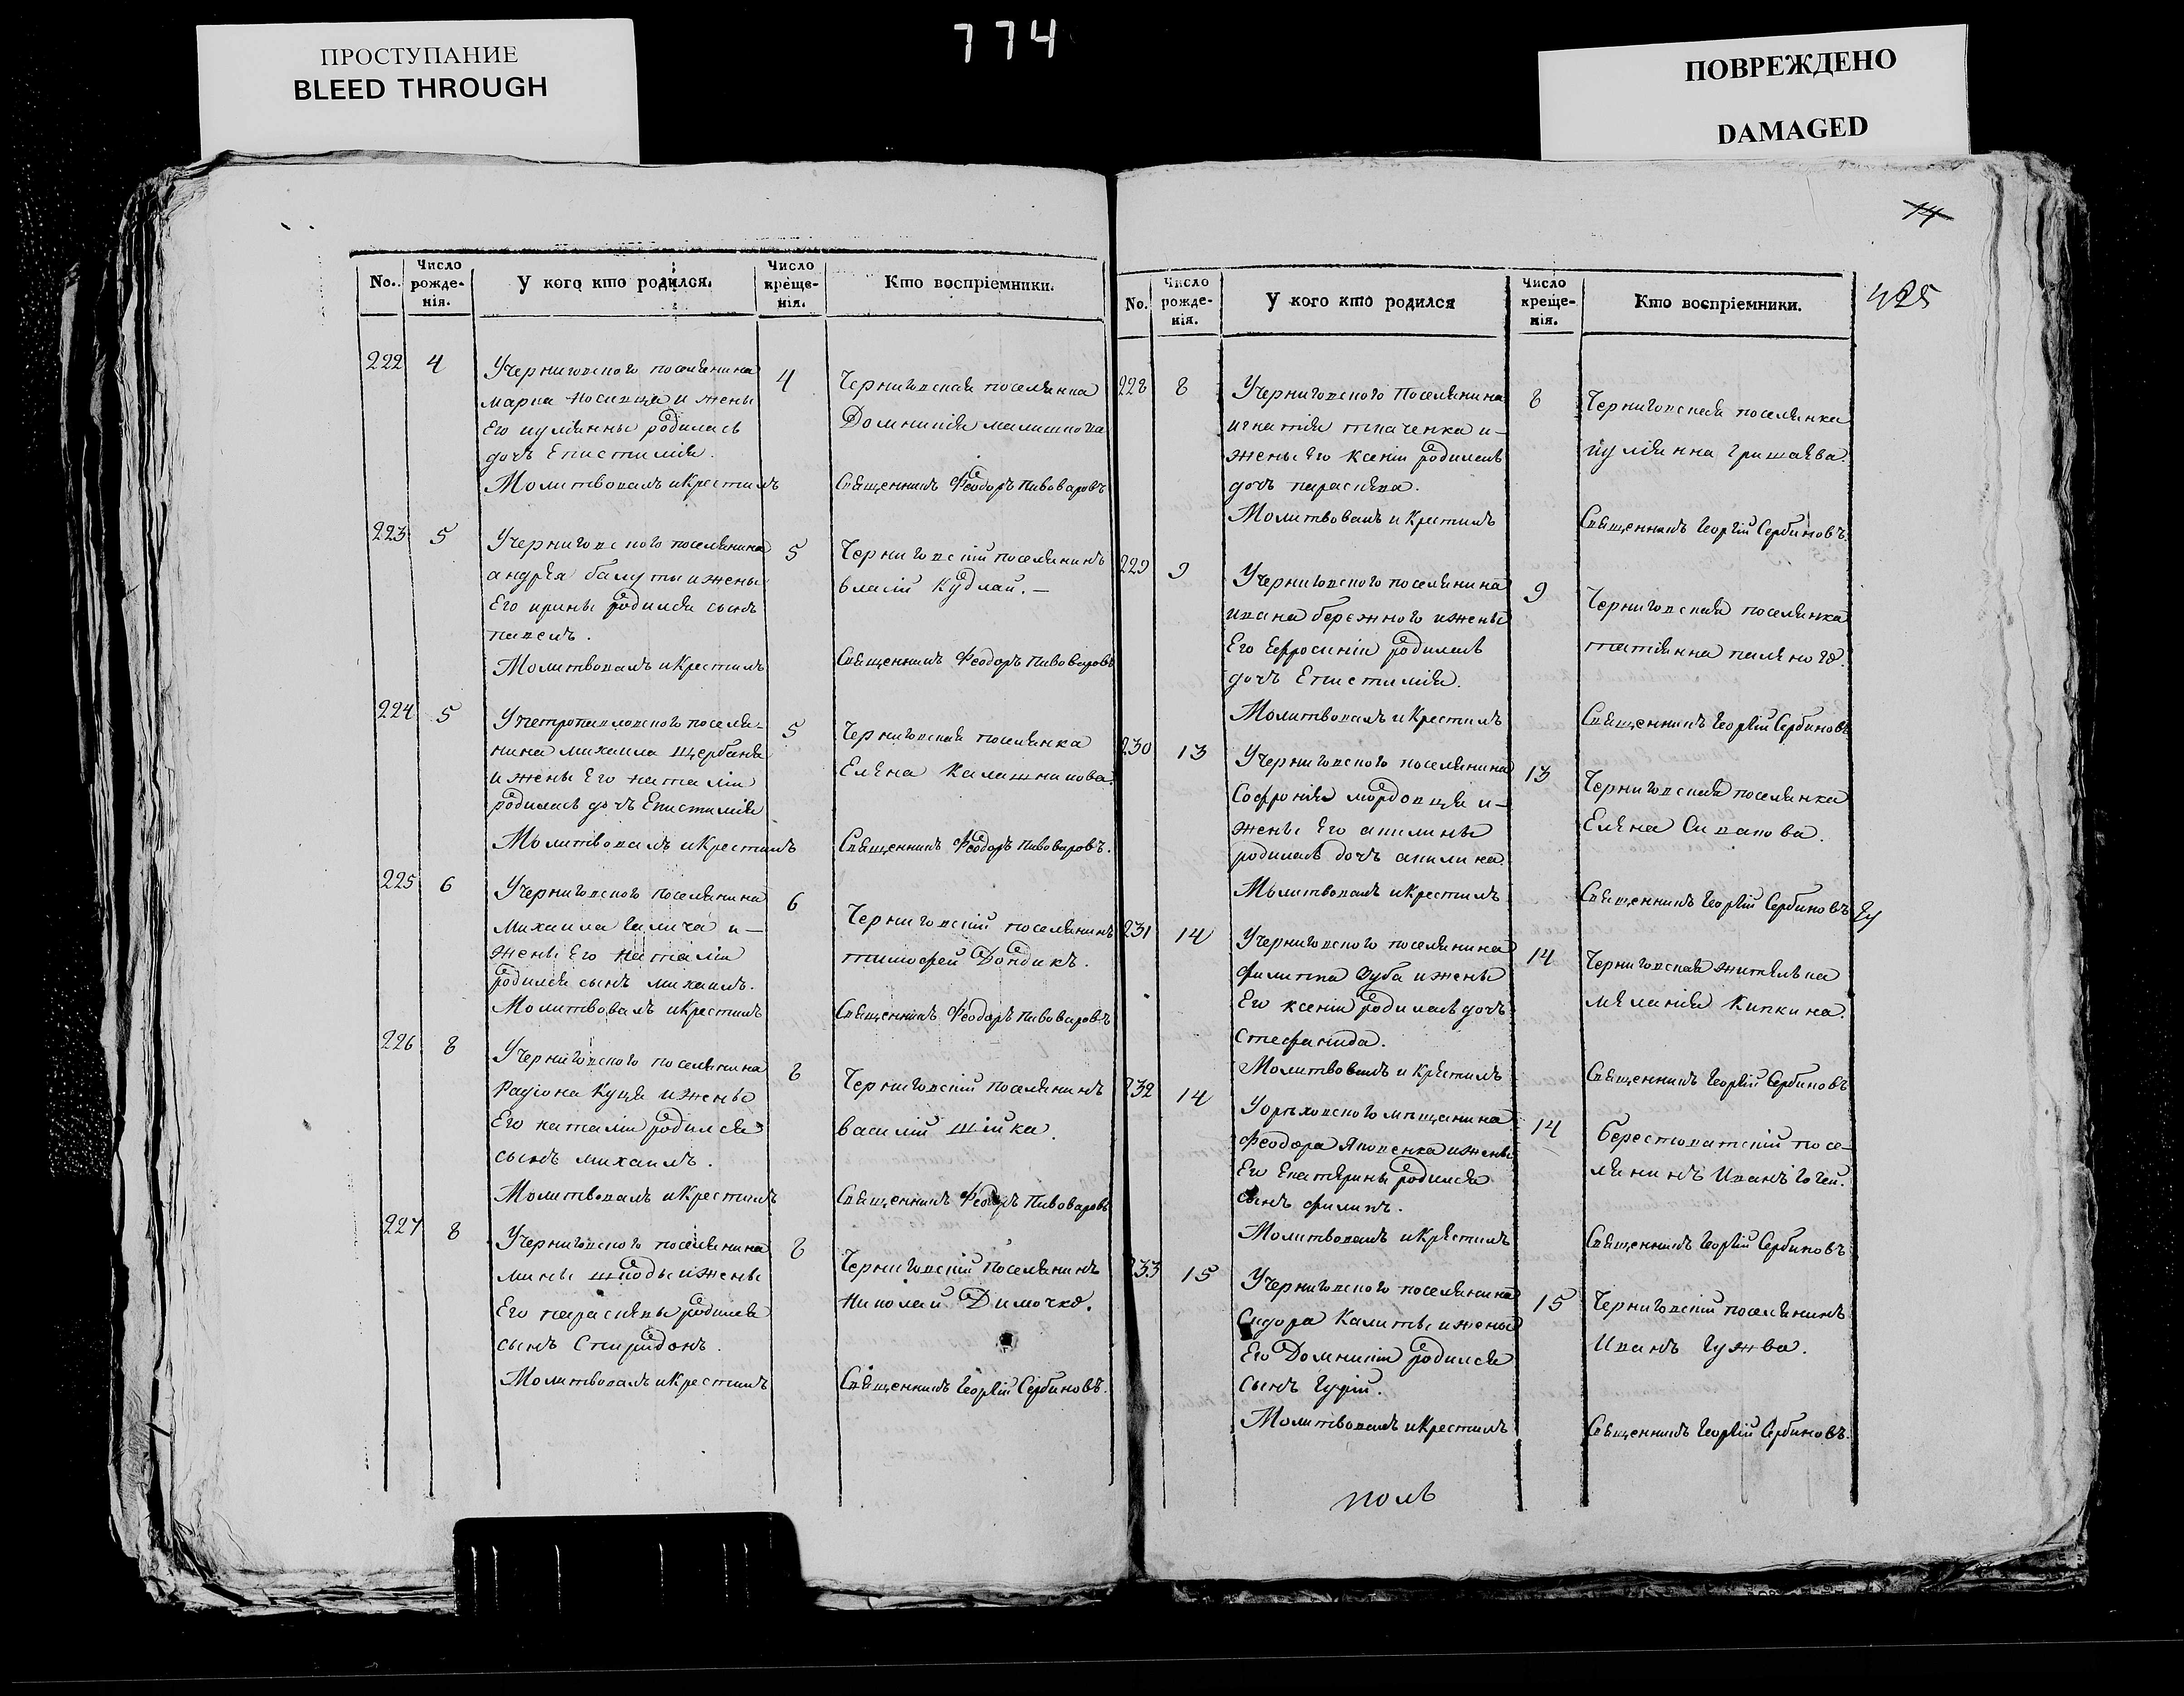 ПРОСТУПАНИЕ
BLEED THROUGH
774
ПОВРЕЖДЕНО
DAMAGED
14
425
No. Число рожде-нія. У кого кто родился. Число креще-нія. Кто воспріемники.
222 4 4
Учерниговского поселянина
марка носивця и жены
Его иулиянны родилась
дочъ Епистимія.
Молитвовалъ и Крестилъ
Черниговская поселянка
Домникія малишкова
Священникъ Феодоръ Пивоваровъ
223 5 5
Учерниговского поселянина
андрея балуты и жены
Его ирины родился сынъ
павелъ.
Молитвовалъ и Крестилъ
Черниговскій поселянинъ
власій Кудлай. —
Священникъ Феодоръ Пивоваровъ
224 5 5
Упетропавловского поселя-
нина михаила щербаня
и жены Его наталіи
родилась дочъ Епистимія
Молитвовалъ и Крестилъ
Черниговская поселянка
Елена Калашникова.
Священникъ Феодоръ Пивоваровъ.
225 6 6
Учерниговского поселянина
михаила Галича и —
жены Его наталіи
родился сынъ михаилъ.
Молитвовалъ и Крестилъ
Черниговскій поселянинъ
тимофей Дондикъ.
Священникъ Феодоръ Пивоваровъ
226 8 8
Учерниговского поселянина
Радіона Куця и жены
Его наталіи родился
сынъ михаилъ.
Молитвовалъ и Крестилъ
Черниговскій поселянинъ
василій шійка.
Священникъ Феодоръ Пивоваровъ
227 8 8
Учерниговского поселянина
мины шкоды и жены
Его парасkевы родился
сынъ Спиридонъ.
Молитвовалъ и Крестилъ
Черниговскій поселянинъ
Николай Димочко.
Священникъ Георгій Сербиновъ.
No. Число рожде-нія. У кого кто родился Число креще-нія. Кто воспріемники.
228 8 8
Учерниговского Поселянина
игнатія ткаченка и —
жены Его Ксеніи родилась
дочъ параскева.
Молитвовалъ и Крестилъ
Черниговская поселянка
иулиянна гришаева.
Священникъ Георгій Сербиновъ.
229 9 9
Учерниговского поселянина
ивана бережного и жены
Его Ефросиніи родилась
дочъ Епистимія.
Молитвовалъ и Крестилъ
Черниговская поселянка
татіянна
Священникъ Георгій Сербиновъ
230 13 13
Учерниговского поселянина
Софронія мордовця и —
жены Его акилины
родилась дочъ акилина.
Молитвовалъ и Крестилъ
Черниговская поселянка
Елена Сивакова.
Священникъ Георгій Сербиновъ
231 14 14
Учерниговского поселянина
филипа Зуба и жены
Его ксеніи родилась дочъ
Стефанида.
Молитвовалъ и Крестилъ
Черниговская жителька
меланія Кипкина.
Священникъ Георгій Сербиновъ
232 14 14
Уорѣховского мѣщанина
Феодора Яковенка и жены
Его Екатерины родился
сынъ филипъ.
Молитвовалъ и Крестилъ
берестоватскій посе-
лянинъ Иванъ Гогей.
Священникъ Георгій Сербиновъ
233 15 15
Учерниговского поселянина
Сидора Калиты и жены
Его Домникіи родился
сынъ Гурій.
Молитвовалъ и Крестилъ
Черниговскій поселянинъ
Иванъ Гужва.
Священникъ Георгій Сербиновъ.